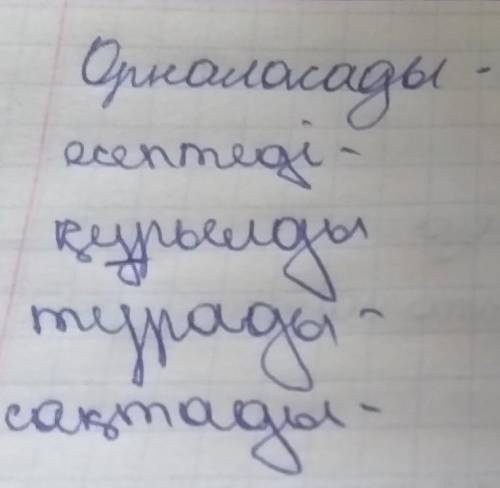 Орналасады -
есептеді -
құрылды
тұрады -
сақтады -